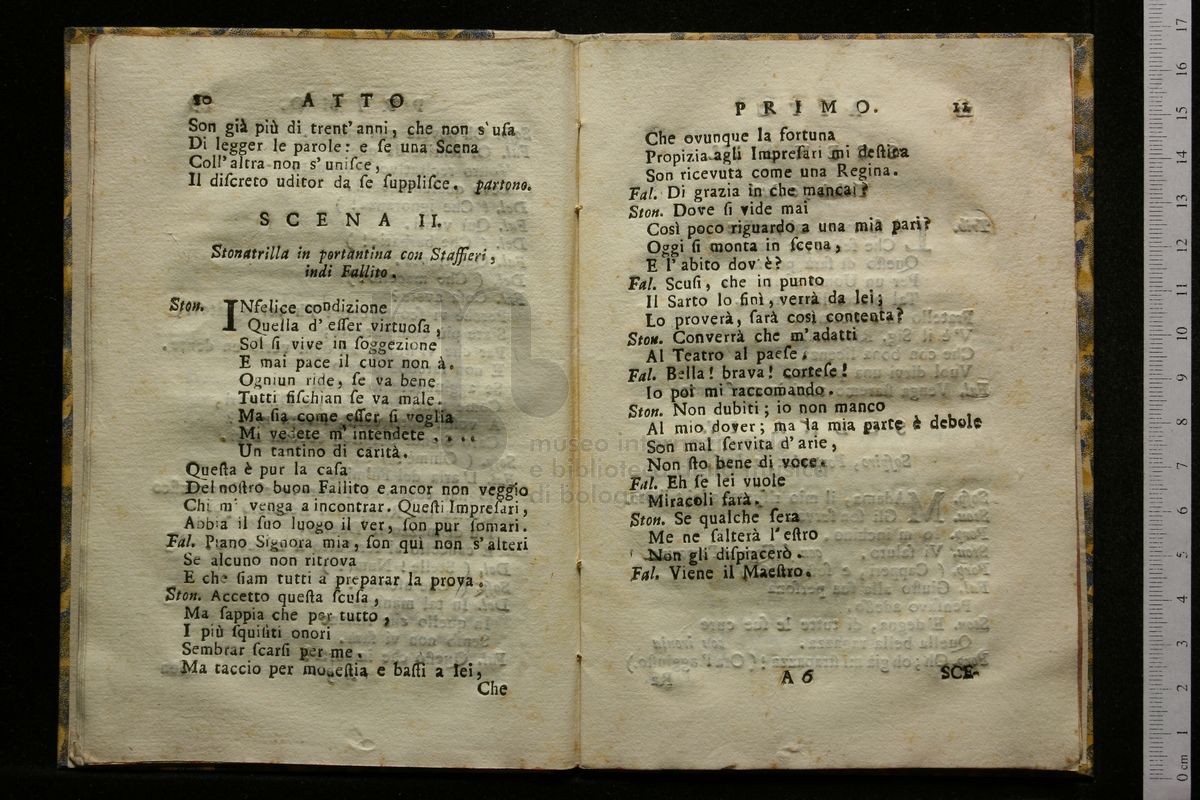 10 ATTO
Son già più di trent' anni, che non s'usa
Di legger le parole: e se una Scena
Coll' altra non s' unisce,
Il discreto uditor da se supplisce. partono.
SCENA II.
Stonatrilla in portantina con Staffieri,
indi Fallito.
Ston. INfelice condizione
Quella d' esser virtuosa,
Sol si vive in soggezione
E mai pace il cuor non à.
Ogniun ride, se va bene
Tutti fischian se va male.
Ma sia come esser si voglia
Mi vedete m' intendete ....
Un tantino di carità.
Questa è pur la casa
Del nostro buon Fallito e ancor non veggio
Chi mi venga a incontrar. Questi Impresari,
Abbia il suo luogo il ver, son pur somari.
Fal. Piano Signora mia, son quì non s'alteri
Se alcuno non ritrova
E che siam tutti a preparar la prova.
Ston. Accetto questa scusa,
Ma sappia che per tutto,
I più squisiti onori
Sembrar scarsi per me.
Ma taccio per modestia e basti a lei,
Che
PRIMO. 11
Che ovunque la fortuna
Propizia agli Impresari mi destina
Son ricevuta come una Regina.
Fal. Di grazia in che mancai?
Ston. Dove si vide mai
Così poco riguardo a una mia pari?
Oggi si monta in scena,
E l' abito dov' è?
Fal. Scusi, che in punto
Il Sarto lo finì, verrà da lei;
Lo proverà, sarà così contenta?
Ston. Converrà che m' adatti
Al Teatro al paese.
Fal. Bella! brava! cortese!
Io poi mi raccomando.
Ston. Non dubiti; io non manco
Al mio dover; ma la mia parte è debole
Son mal servita d' arie,
Non sto bene di voce.
Fal. Eh se lei vuole
Miracoli farà.
Ston. Se qualche sera
Me ne salterà l' estro
Non gli dispiacerò.
Fal. Viene il Maestro.
A 6 SCE-
museo inter
e bibliote
di bologna